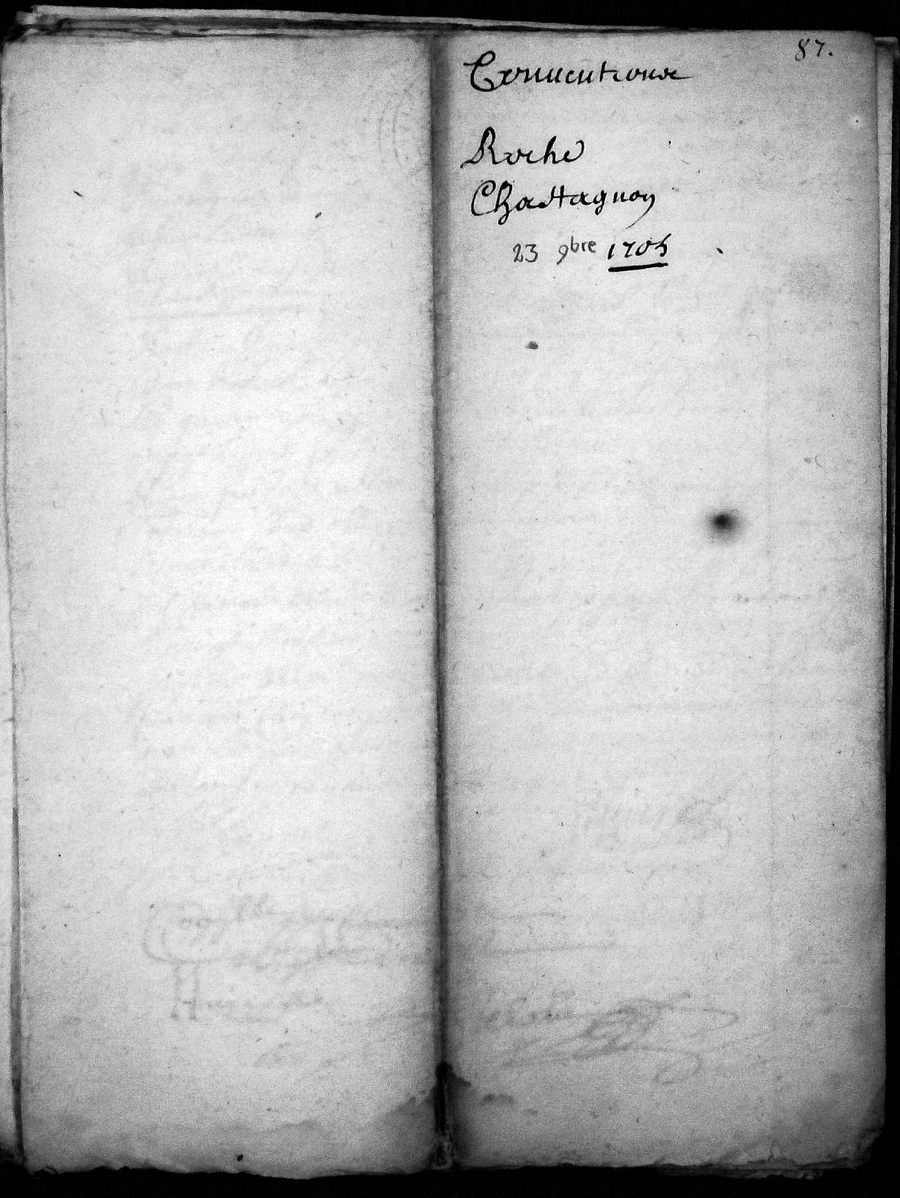 87.
Conventions
Roche
Chastagnon
23 9bre 1705